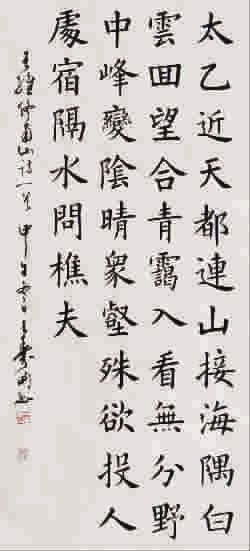 太乙近天都連山接海隅白
雲囬望合青靄入看無分野
中峰變陰晴衆壑殊欲投人
處宿隔水問樵夫
王維終南山诗一首 甲午